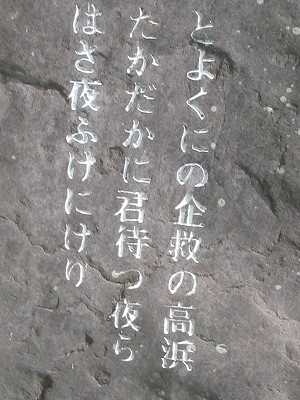 とよくにの企救の高浜
たかだかに君待つ夜ら
はさ夜ふけにけり